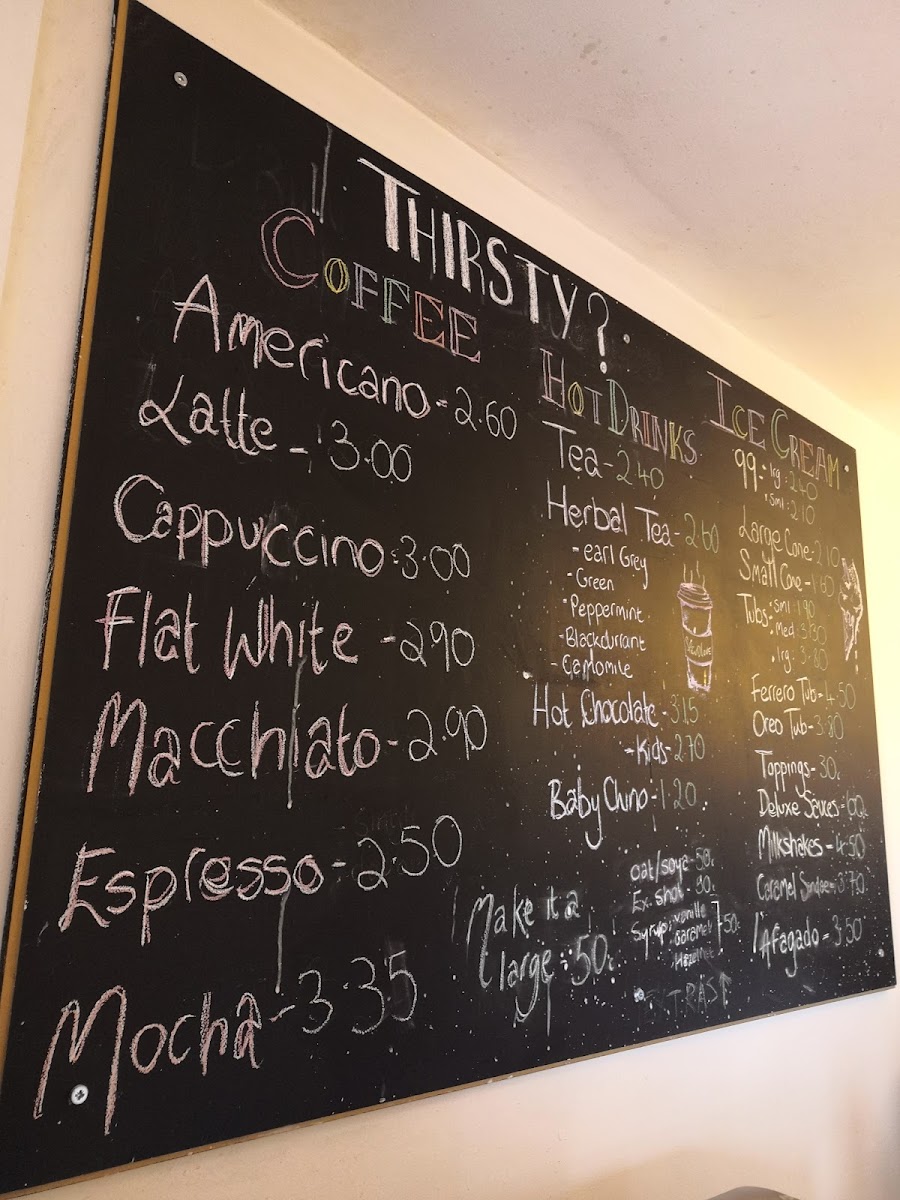 THIRSTY?
COFFEE
Americano - 2.60
Latte - 3.00
Cappuccino - 3.00
Flat White - 2.90
Macchiato - 2.90
Espresso - 2.50
Mocha - 3.35
Make it a
large : 50
HOT DRINKS
Tea - 2.40
Herbal Tea - 2.60
- earl Grey
- Green
- Peppermint
- Blackcurrant
- Camomile
Hot Chocolate - 3.15
- Kids - 2.70
Baby Chino - 1.20
oat/soya - 50
Ex. shot - 90
Syrups: vanille
caramel 50
Hazelnut
EXTRAS↑
ICE CREAM
99 - lrg : 2.40
sml : 2.10
Large Cone - 2.10
Small Cone - 1.80
Tubs: sml 1.90
med
lrg - 3.80
Ferrero Tub - 4.50
Oreo Tub - 3.80
Toppings - 30
Deluxe Sauces - 60
Milkshakes - 4.50
Caramel Sundae - 3.70
Afagado - 3.50